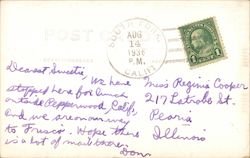 POST C
AUG
14
1936
P.M.
CALIF.
1
Dearest Sweetie, We have
stopped here for lunch
outside Pepperwood Calif.
and we are on our way
to Frisco. Hope there
is a lot of mail there.
Don
Miss Regina Cooper
217 Latrobe St.
Peoria
Illinois